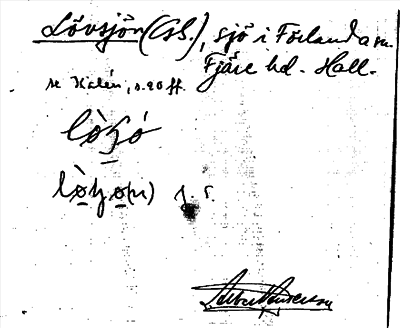 Lövsjön (Gs.), sjö i Förlanda sn.
Fjäre hd. Hall.
se Kalén, s. 90 ff.
lòʒó
lòʒo(n) f. s.